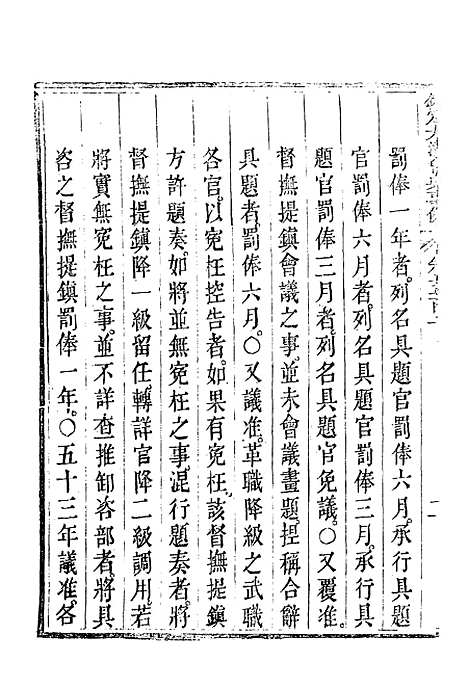 罰俸一年者。列名具題官罰俸六月。承行具題
官罰俸六月者。列名具題官罰俸三月。承行具
題官罰俸三月者。列名具題官免議。○又覆准。
督撫提鎮會議之事。並未會議畫題。捏稱合辭
具題者。罰俸六月。○又議准。革職降級之武職
各官。以冤枉控告者。如果有冤枉。該督撫提鎮
方許題奏。如將並無冤枉之事。混行題奏者。將
督撫提鎮降一級留任。轉詳官降二級調用。若
將實無冤枉之事。並不詳查。推卸咨部者。將具
咨之督撫提鎮罰俸一年。○五十三年議准。各